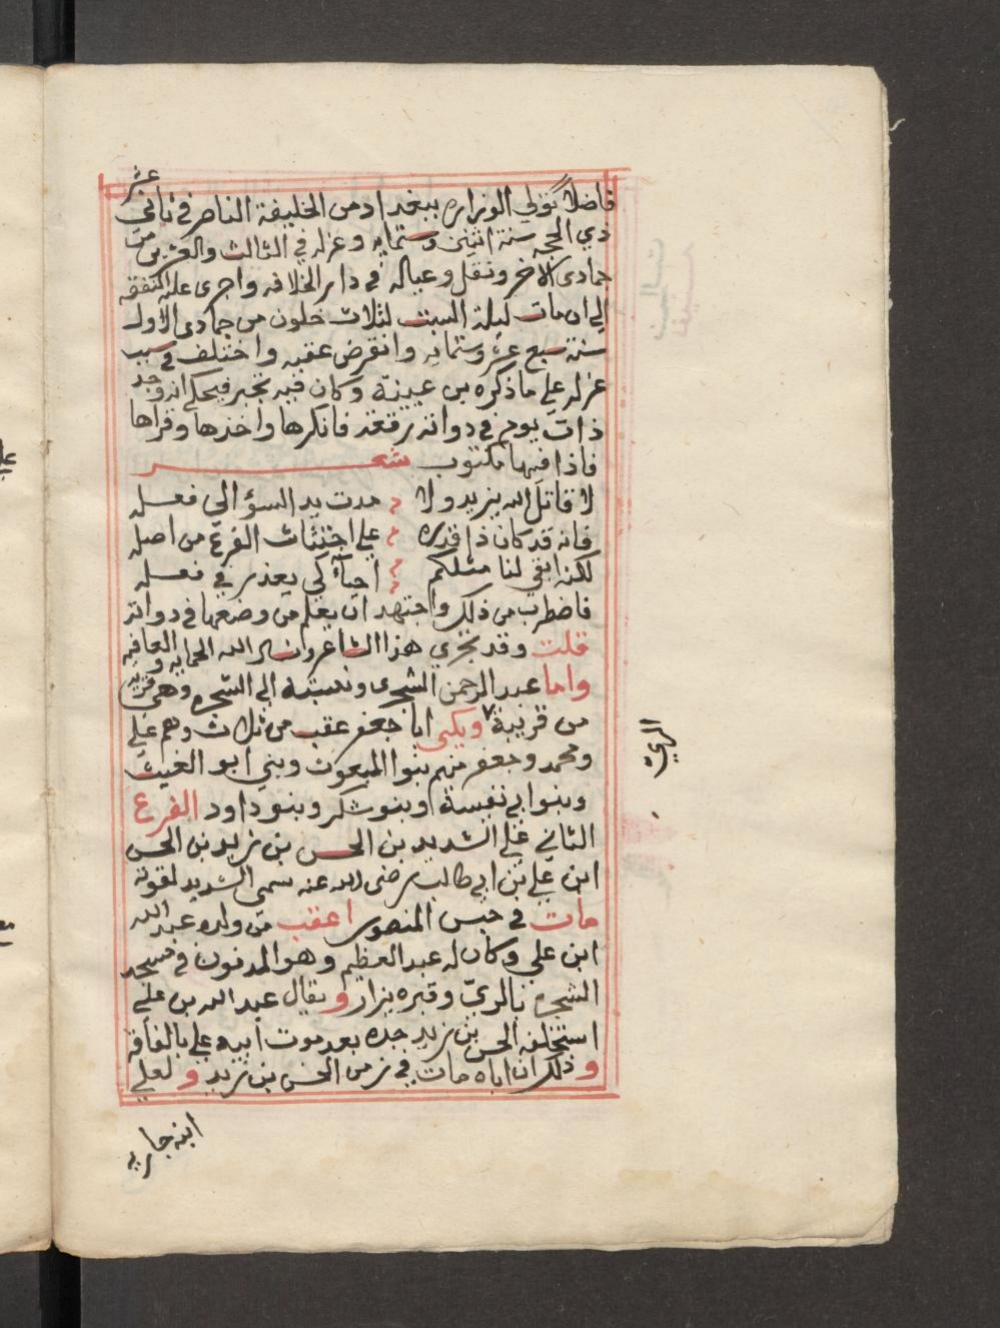 عشر
فاضلا تولي الوزاره ببغداد من الخليفة الناصر في ثاني
ذي الحجه سنة اثنين وستمايه وعزله في الثالث والعشرين من
جمادى الاخر ونقل وعياله في دار الخلافه واجرى عليه النفقه
الى ان مات ليلة السبت لثلاث خلون من جمادى الاول
سنة سبع عشر وستمايه وانقرض عقبه واختلف في سبب
عزله علي ما ذكره بن عيينة وكان فيه تجبر فيحكى انه وجد
ذات يوم في دواته رقعة فانكرها واخذها وقراها
فاذا فيها مكتوب شعر
لا قاتل الله يزيد ولا مدت يد السؤ الي فعله
فانه قد كان ذا قدره علي اجتثاث الفرع من اصله
لكنه ابقى لنا مثلكم احياء كي يعذر في فعله
فاضطرب من ذلك واجتهد ان يعلم من وضعها في دواته
قلت وقد تجري هذا الشاعر وانسال الله الحمايه والعافيه
واما عبد الرحمن الشجرى ونسبته الى الشجره وهى قريه
من قريبة ويكنى ابا جعفر عقب من ثلاث وهم علي
ومحمد وجعفر منهم بنوا المبعوث وبني ابو الغيث
وبنوا بي نفيسة وبنو شكر وبنو داود الفرع
الثاني علي الشديد بن الحسن بن زيد بن الحسن
ابن علي بن ابي طالب رضى الله عنه سمى الشديد لقوته
مات في حبس المنصور اعقب من ولده عبد الله
ابن علي وكان له عبد العظيم وهو المدفون في مسجد
الشجره بالري وقبره يزار ويقال عبد الله بن علي
استخلفه الحسن بن زيد جده بعد موت ابيه علي بالفاقه
وذلك ان اباه مات في زمن الحسن بن زيد ولعلي
ابنه جاريه